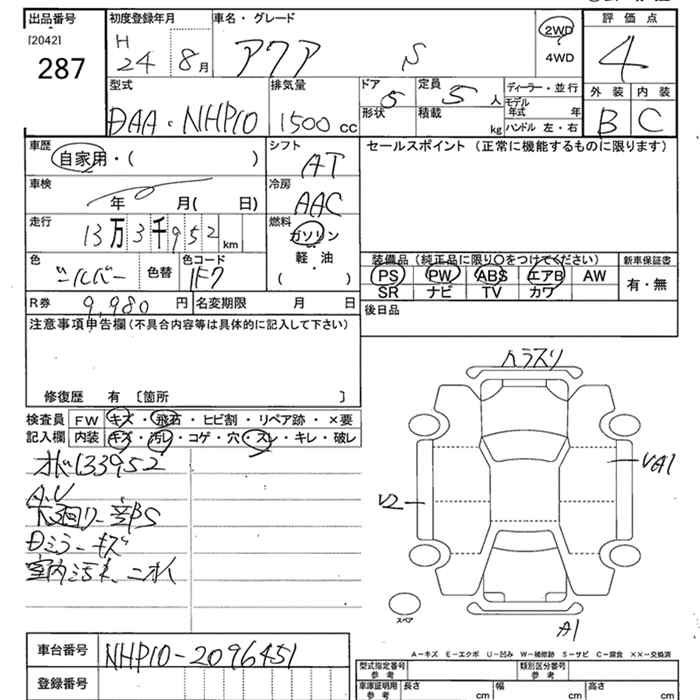 出品番号 初度登録年月 車名・グレード 評価点
[2042] H 2WD
287 24 8月 アクア S 4WD 4
型式 排気量 ドア 定員 ディーラー・並行 外装 内装
DAA・NHP10 1500cc 5 5人 モデル年式 年 B C
形状 積載 kg ハンドル 左・右
車歴 シフト セールスポイント (正常に機能するものに限ります)
自家用・( ) AT
車検 冷房
年 月( 日) AAC
走行 燃料
13万3千952km ガソリン
色 色替 色コード 軽・油 装備品 (純正品に限り〇をつけてください) 新車保証書
シルバー 1F7 ( ) PS PW ABS エアB AW 有・無
SR ナビ TV カワ
R券 9,980円 名変期限 月 日 後日品
注意事項申告欄(不具合内容等は具体的に記入して下さい)
修復歴 有 〔箇所 〕
検査員 FW キズ・飛石・ヒビ割・リペア跡・×要
記入欄 内装 キズ・汚れ・コゲ・穴・スレ・キレ・破レ
133952
A.U
下廻り一部S
Dミラーキズ
室内汚れ、ニオイ
ヘラスリ
UA1
U2
スペア
A1
A-キズ E-エクボ U-凹み W-補修跡 S-サビ C-腐食 ××-交換済
車台番号 NHP10-2096451
登録番号
型式指定番号 参考 類別区分番号 参考
車庫証明用 参考 長さ cm 幅 cm 高さ cm